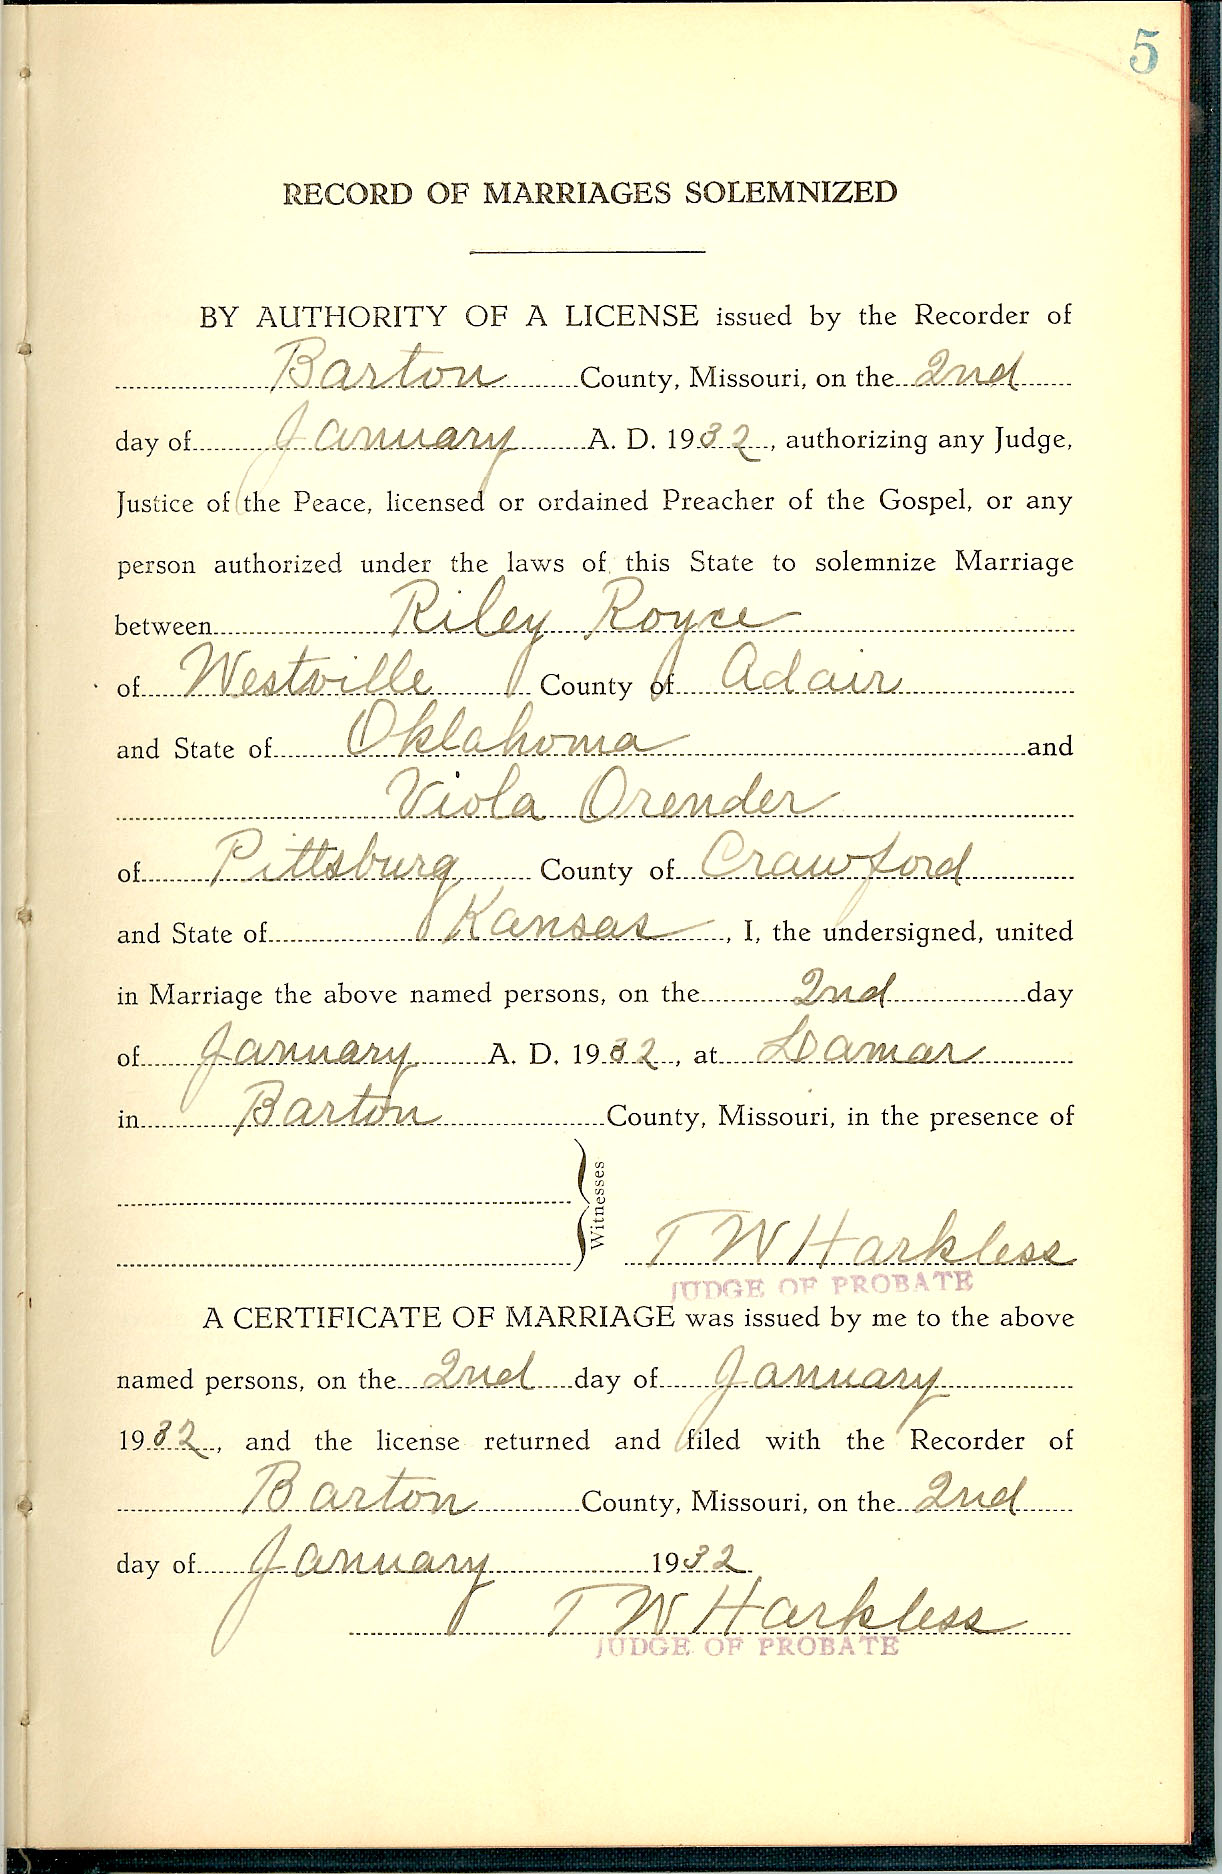 5
RECORD OF MARRIAGES SOLEMNIZED
BY AUTHORITY OF A LICENSE issued by the Recorder of
Barton County, Missouri, on the 2nd
day of January A. D. 1932, authorizing any Judge,
Justice of the Peace, licensed or ordained Preacher of the Gospel, or any
person authorized under the laws of this State to solemnize Marriage
between Riley Royce
of Westville County of Adair
and State of Oklahoma and
Viola Orender
of Pittsburg County of Crawford
and State of Kansas, I, the undersigned, united
in Marriage the above named persons, on the 2nd day
of January A. D. 1932, at Lamar
in Barton County, Missouri, in the presence of
Witnesses
T W Harkless
JUDGE OF PROBATE
A CERTIFICATE OF MARRIAGE was issued by me to the above
named persons, on the 2nd day of January
1932, and the license returned and filed with the Recorder of
Barton County, Missouri, on the 2nd
day of January 1932
T W Harkless
JUDGE OF PROBATE